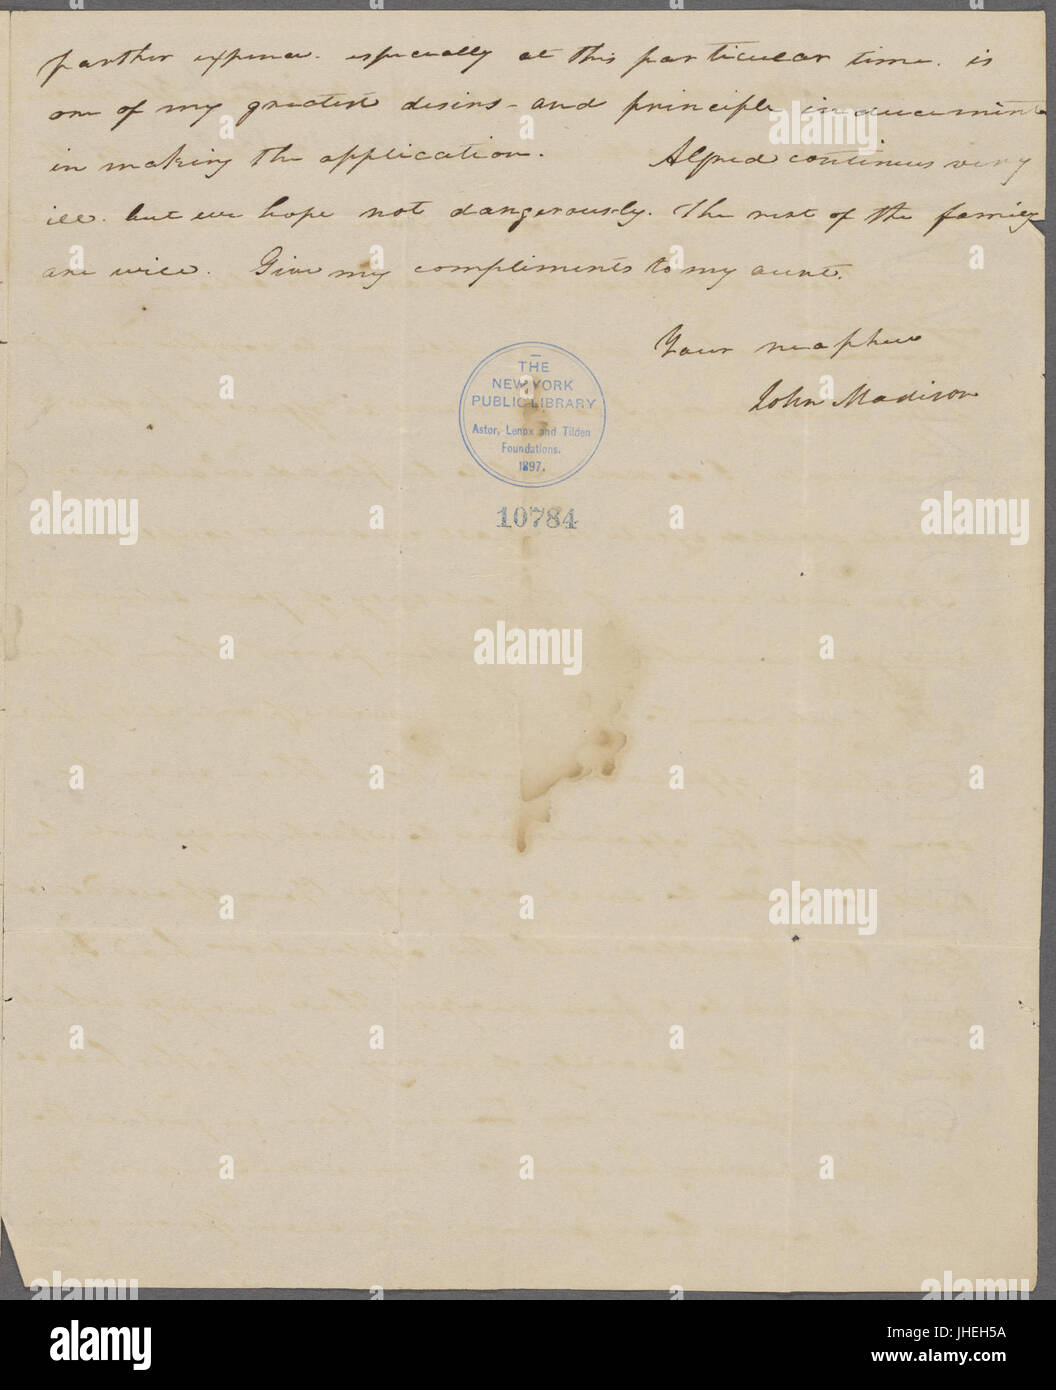 farther expence. especially at this particular time. is
one of my greatest desires - and principle inducements
in making the application. Alfred continues very
ill. but we hope not dangerously. The rest of the family
are well. Give my compliments to my aunt.
Your neaphew
John Madison
THE
NEW YORK
PUBLIC LIBRARY
Astor, Lenox and Tilden
Foundations.
1897.
10784
alamy
a
alamy
Image ID: JHEH5A
www.alamy.com